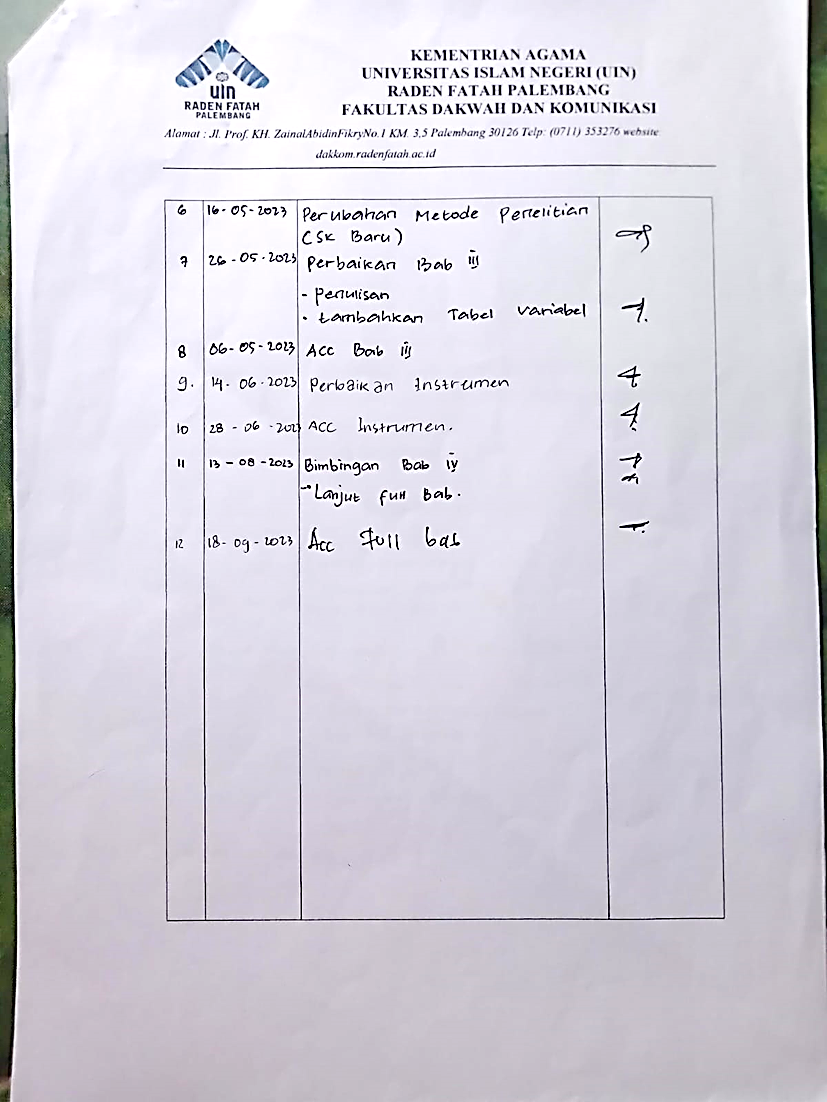 uin
RADEN FATAH
PALEMBANG
KEMENTRIAN AGAMA
UNIVERSITAS ISLAM NEGERI (UIN)
RADEN FATAH PALEMBANG
FAKULTAS DAKWAH DAN KOMUNIKASI
Alamat : Jl. Prof. KH. ZainalAbidinFikryNo.1 KM. 3,5 Palembang 30126 Telp: (0711) 353276 website
dakkom.radenfatah.ac.id
6 16-05-2023 Perubahan Metode Penelitian
(SK Baru)
7 26-05-2023 Perbaikan Bab III
- Penulisan
- tambahkan Tabel Variabel
8 06-05-2023 Acc Bab III
9. 14-06-2023 Perbaikan Instrumen
10 28-06-2023 ACC Instrumen.
11 13-08-2023 Bimbingan Bab IV
- Lanjut full Bab.
12 18-09-2023 Acc full bab